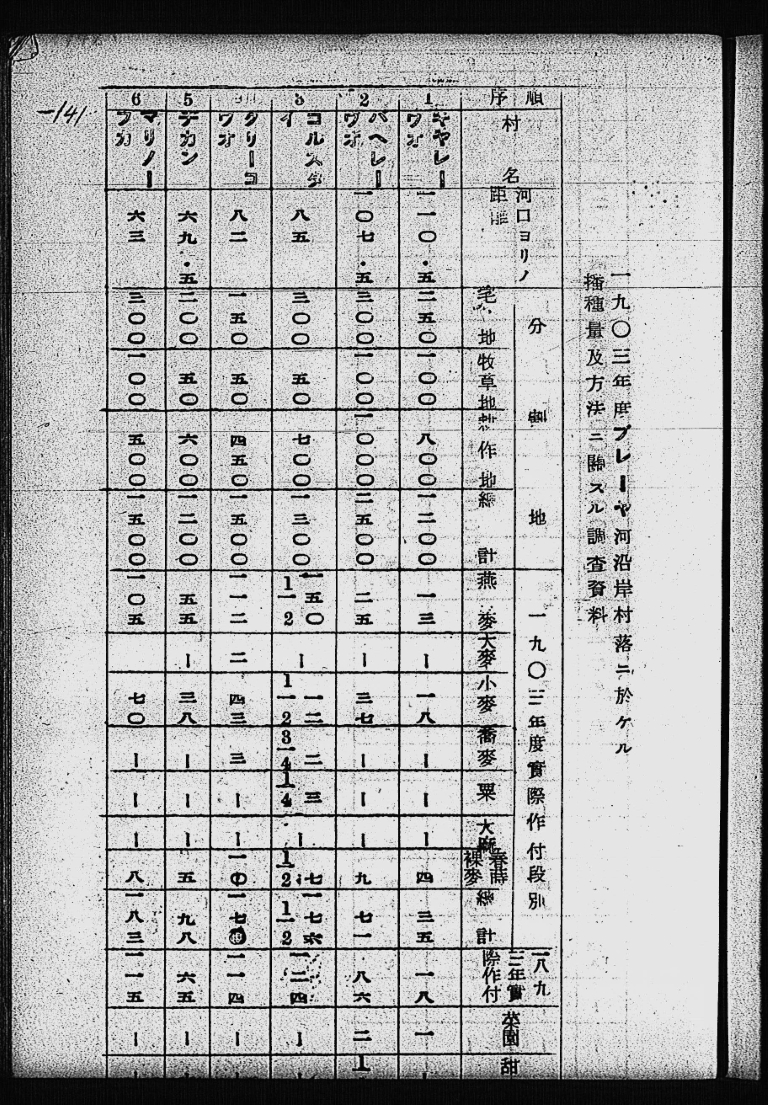 一九〇三年度プレーヤ河沿岸村落ニ於ケル
播種量及方法ニ關スル調査資料
順序 村名 河口ヨリノ距離 分割地 毛地 牧草地 耕作地 總計 一九〇三年度實際作付段別 燕麥 大麥 小麥 蕎麥 粟 大麻 春蒔裸麥 總計 一八九三年實際作付 菜園 甜
1 キヤレーウオ 一一〇・五 二五〇 一〇〇 八〇〇 一二〇〇 一三 ー 一八 ー ー ー 四 三五 一八 一
2 パヘレーウオ 一〇七・五 三〇〇 一〇〇 一〇〇〇 二五〇〇 二五 ー 三七 ー ー ー 九 七一 八六 二 1
3 コルスタイ 八五 三〇〇 五〇 七〇〇 一三〇〇 一五〇1/2 ー 一二1/2 二3/4 三1/4 ー 七1/2 一七六1/2 一二四 ー
クリーコウオ 八二 一五〇 五〇 四五〇 一五〇〇 一一二 二 四三 三 ー ー 一〇 一七 一一四 ー
5 チカン 六九・五 二〇〇 五〇 六〇〇 一二〇〇 五五 ー 三八 ー ー ー 五 九八 六五 ー
6 マリノーフカ 六三 三〇〇 一〇〇 五〇〇 一五〇〇 一〇五 七〇 ー ー ー 八 一八三 一一五 ー
—141